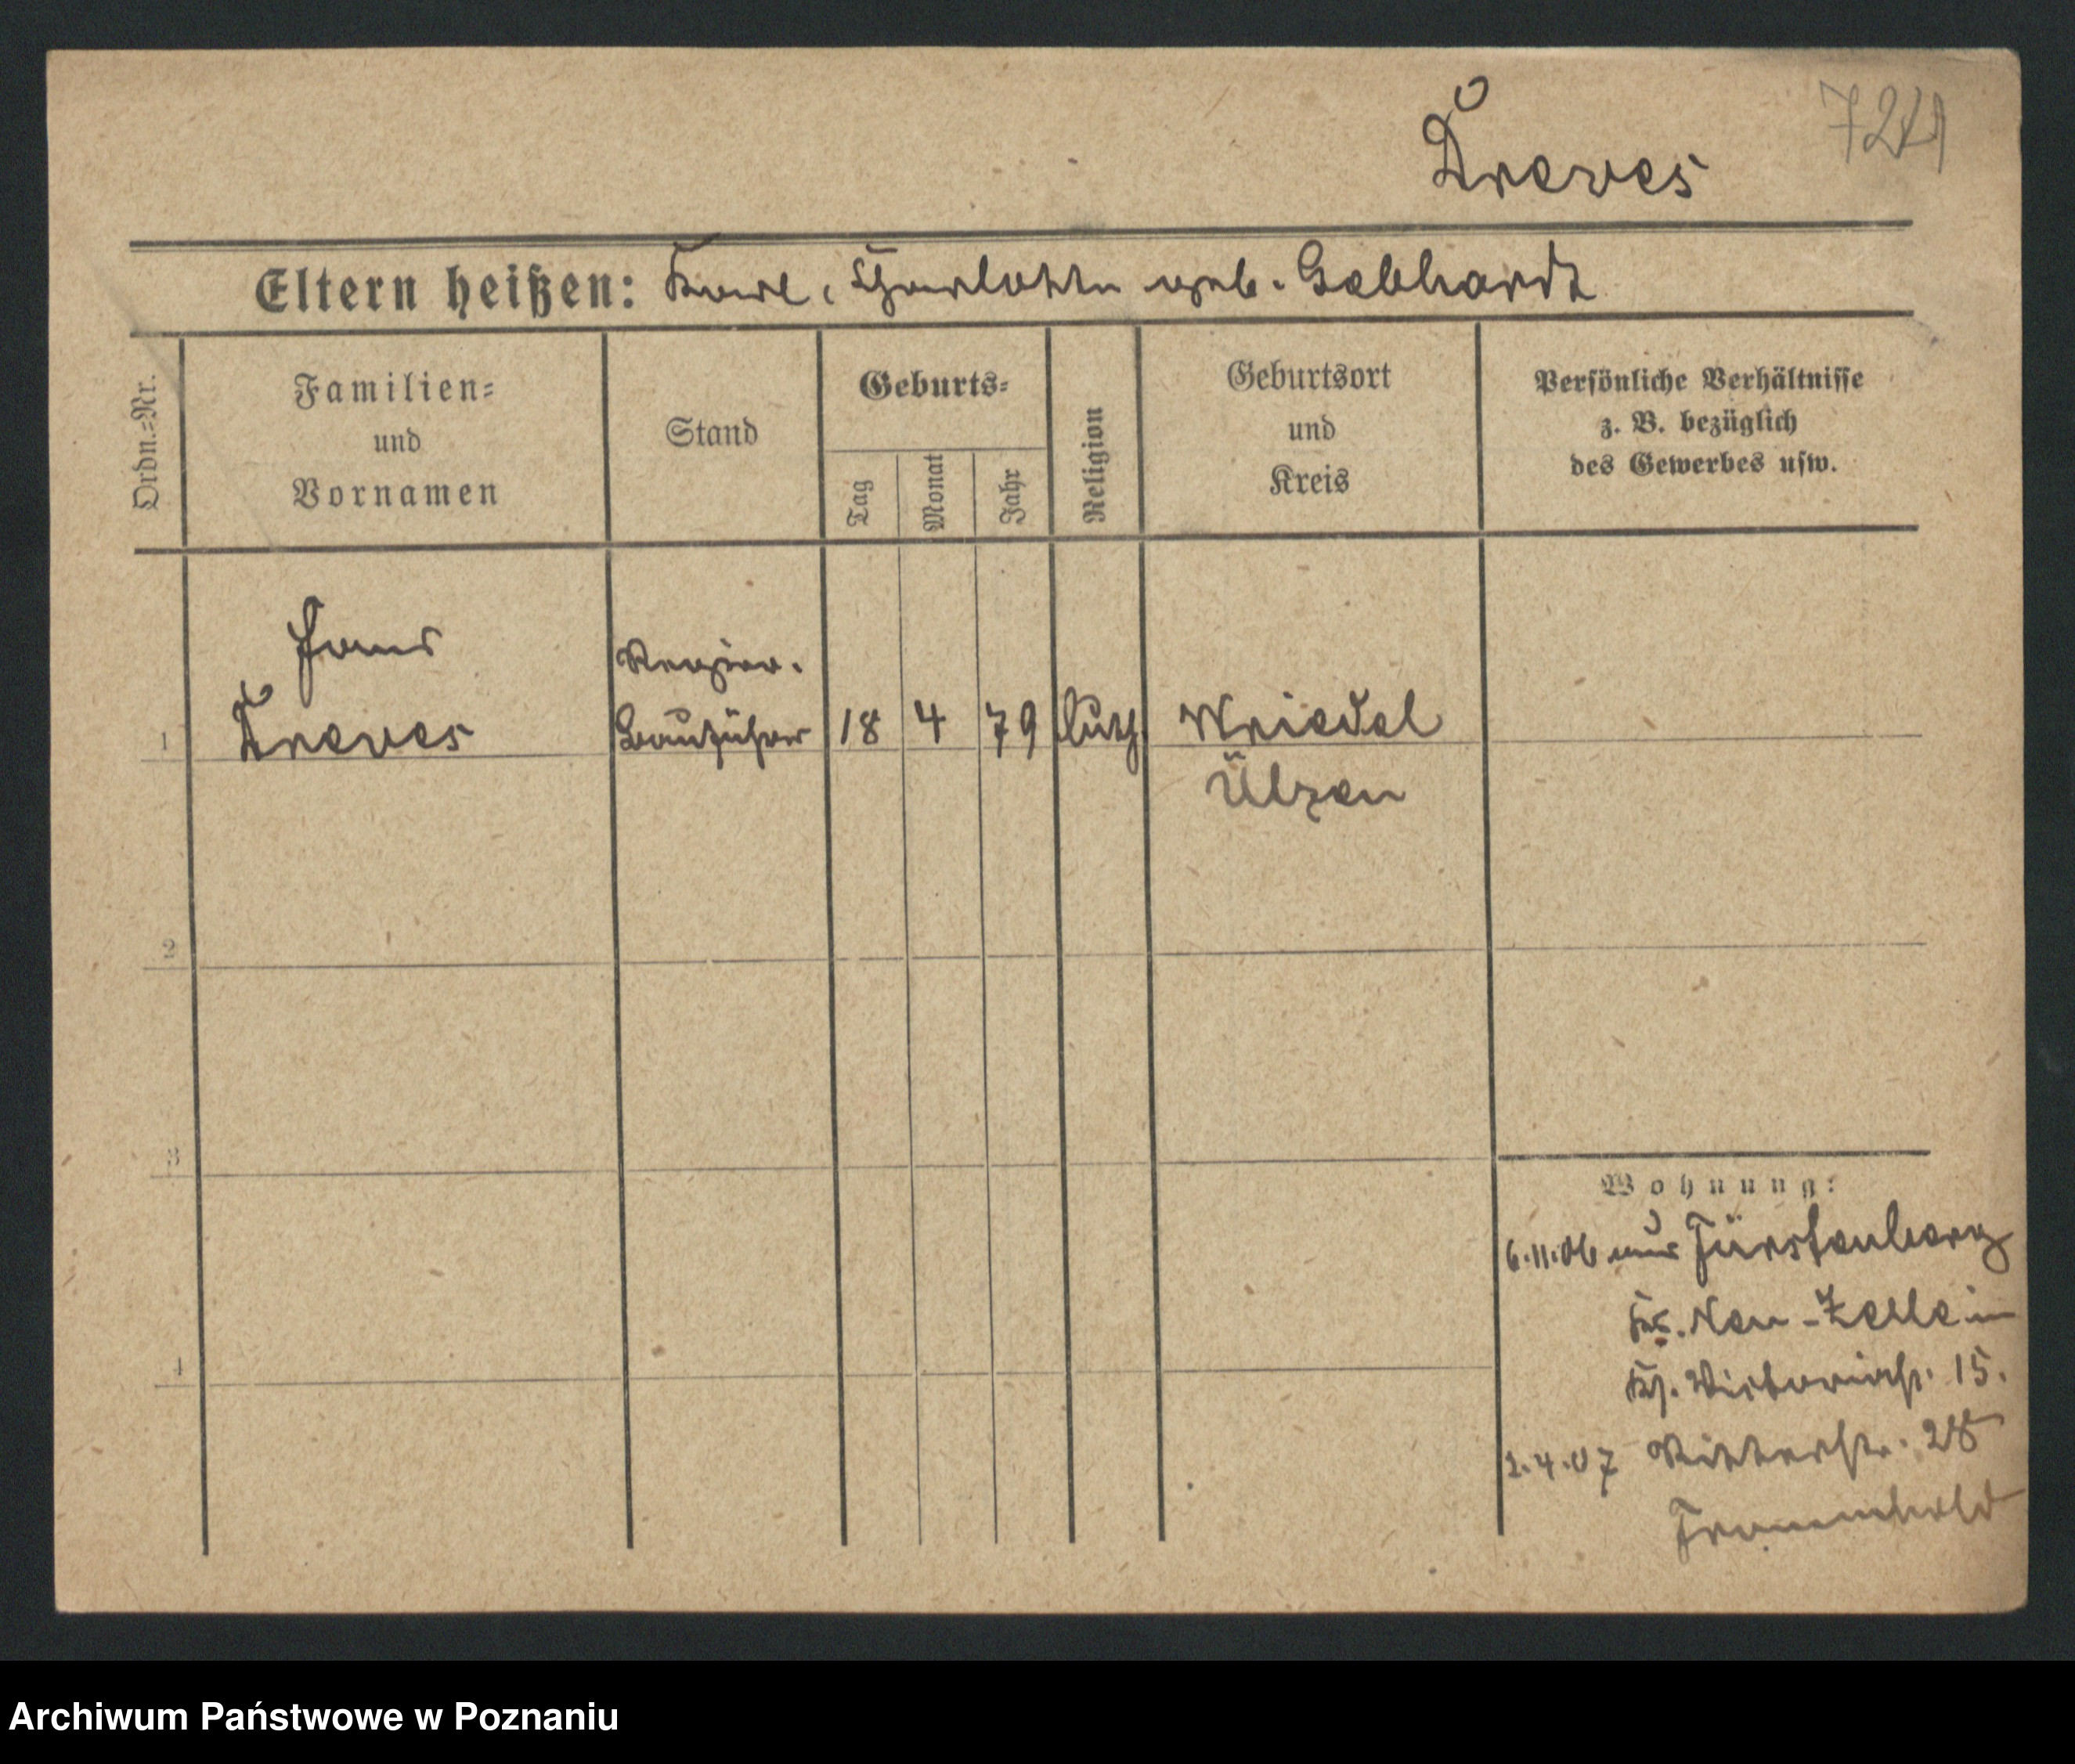 Dreves
724
Eltern heißen: Karl, Charlotte geb. Gebhardt
Ordn.=Nr.
Familien=
und
Vornamen
Stand
Geburts=
Tag
Monat
Jahr
Religion
Geburtsort
und
Kreis
Persönliche Verhältnisse
z. B. bezüglich
des Gewerbes usw.
Hans
Regier.
1 Dreves Bauführer 18 4 79 luth. Wriedel
Ülzen
2
3
4
Wohnung:
6.11.06 aus Fürstenberg
Neu-Zelle in
Victoriastr. 15.
2.4.07 Ritterstr. 28
Frommhold
Archiwum Państwowe w Poznaniu